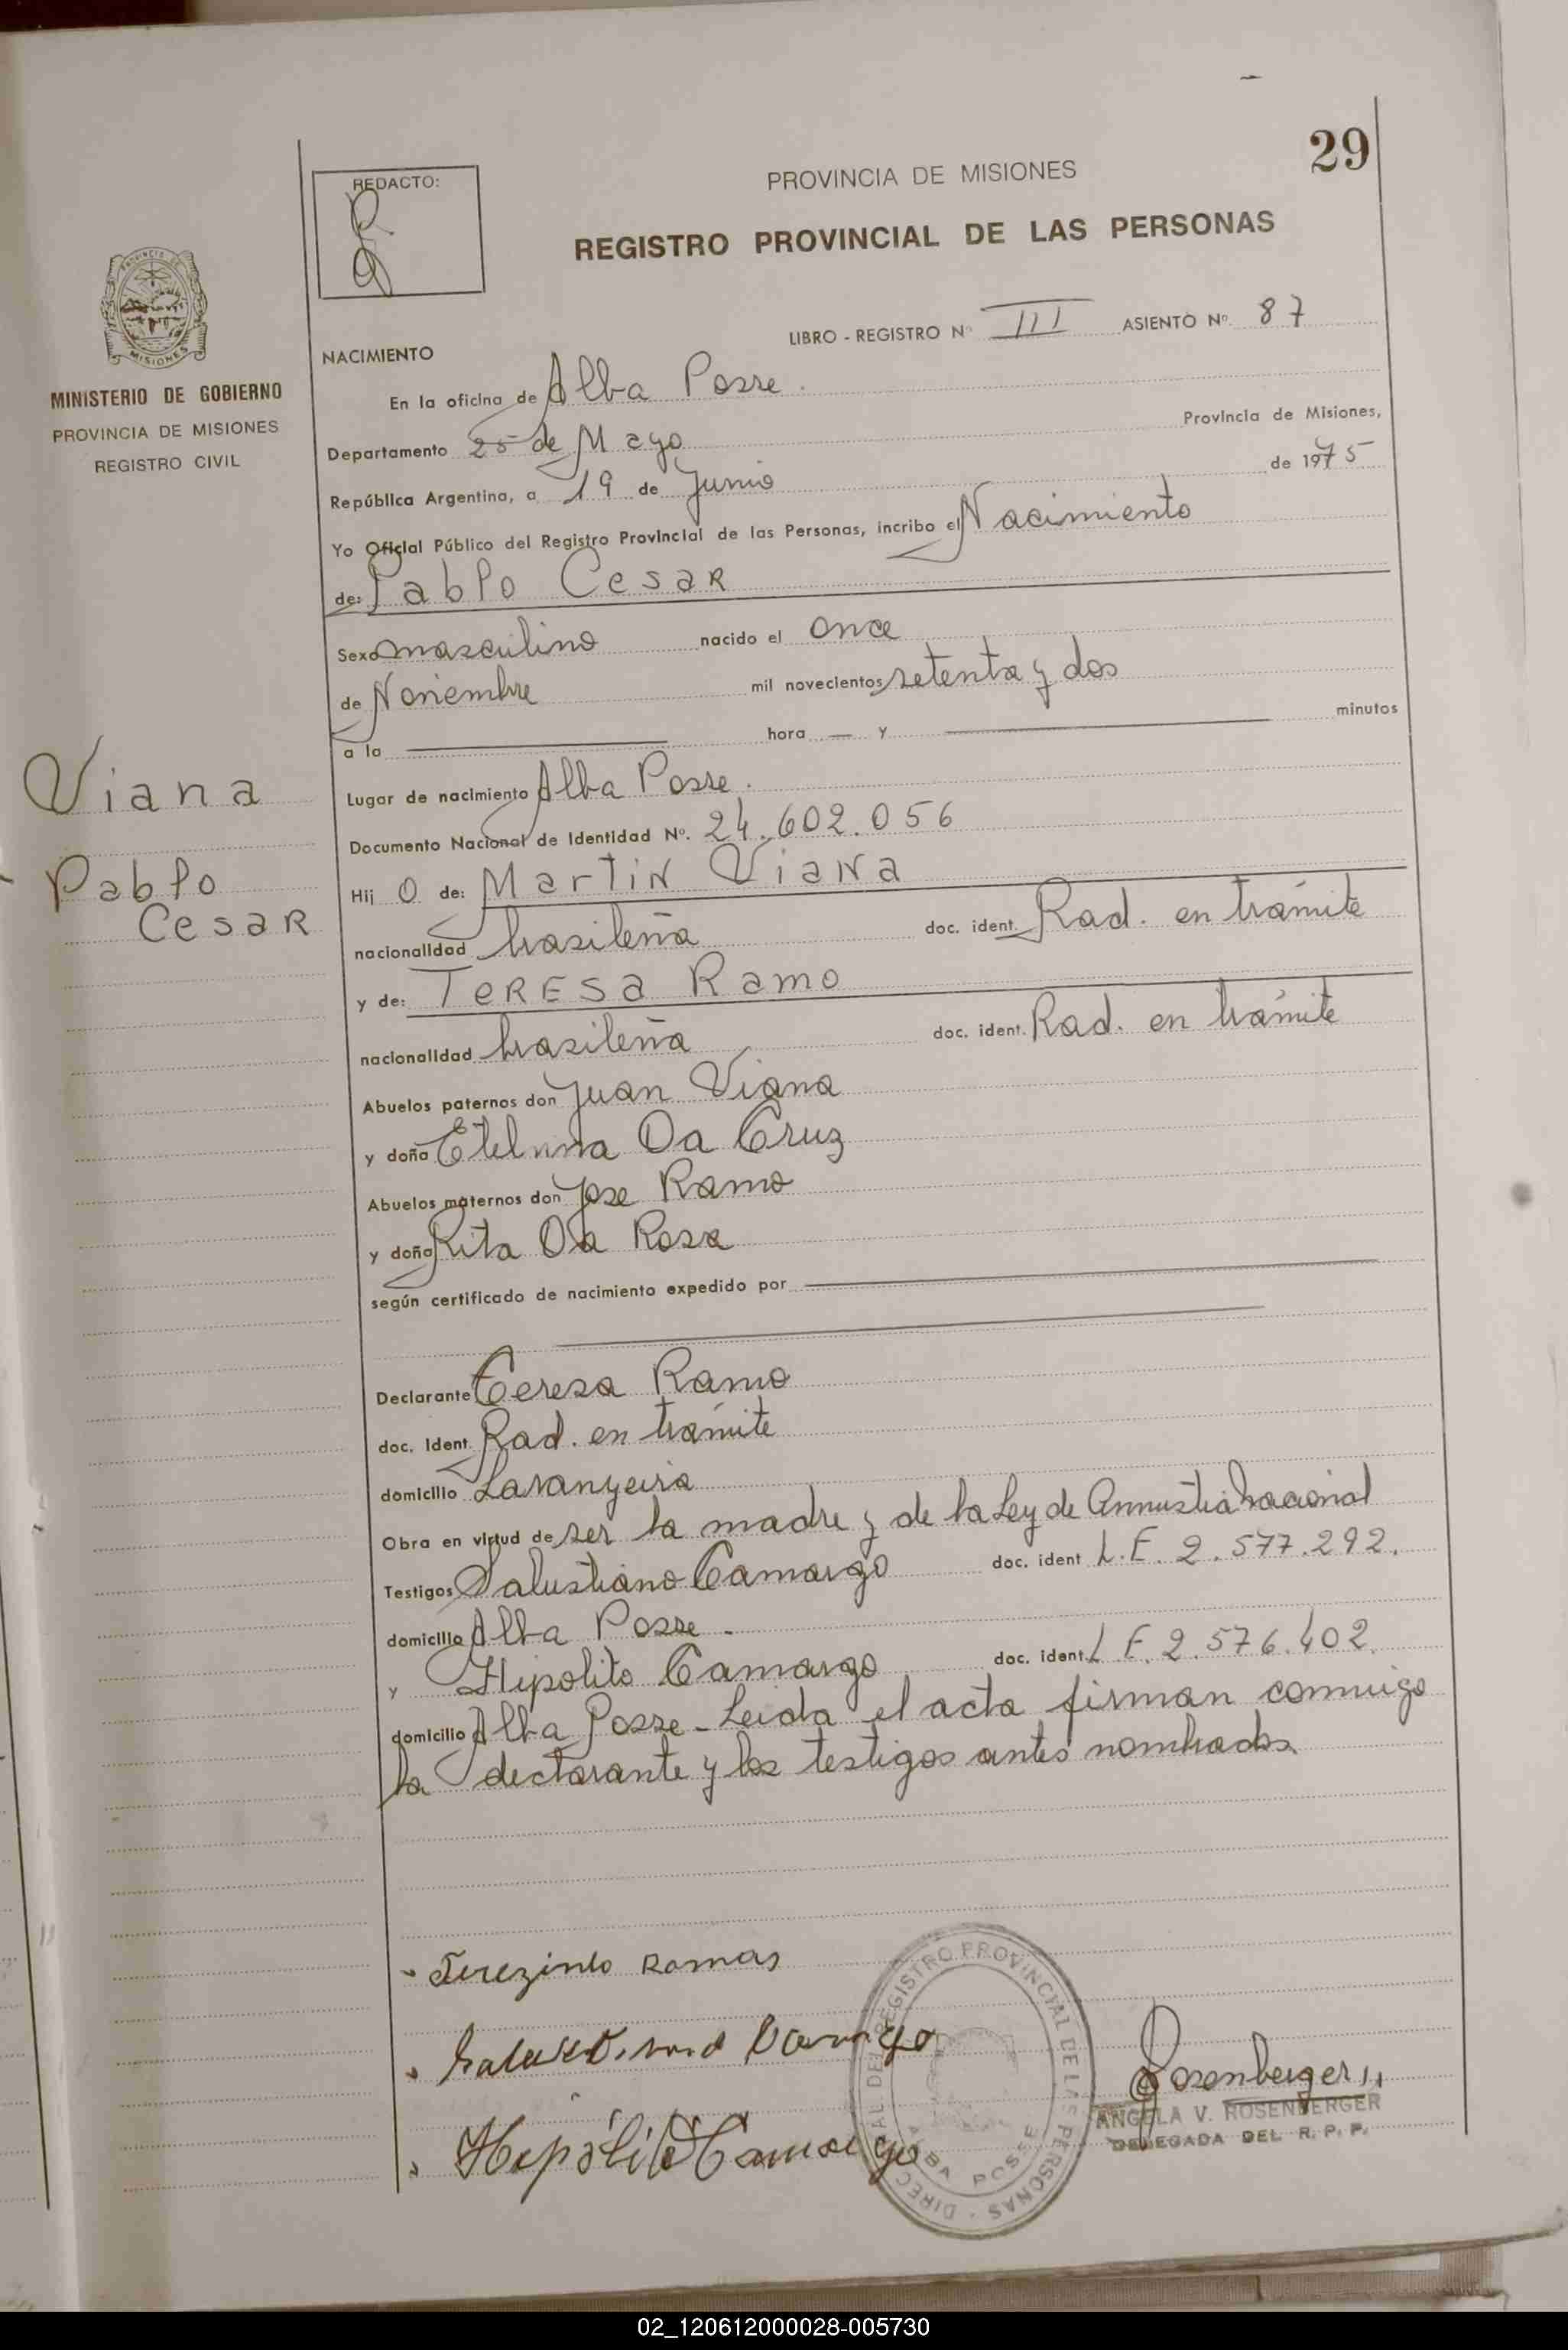 29
REDACTO:
PROVINCIA DE MISIONES
REGISTRO PROVINCIAL DE LAS PERSONAS
LIBRO - REGISTRO Nº III ASIENTO Nº 87
PROVINCIA DE
MISIONES
MINISTERIO DE GOBIERNO
PROVINCIA DE MISIONES
REGISTRO CIVIL
NACIMIENTO
En la oficina de Alba Posse.
Departamento 25 de Mayo Provincia de Misiones,
República Argentina, a 19 de Junio de 1975
Yo Oficial Público del Registro Provincial de las Personas, incribo el Nacimiento
de: Pablo Cesar
Sexo masculino nacido el once
de Noviembre mil novecientos setenta y dos
a la hora — y minutos
Viana
Pablo
Cesar
Lugar de nacimiento Alba Posse.
Documento Nacional de Identidad Nº. 24.602.056
Hij o de: Martin Viana
nacionalidad brasileña doc. ident. Rad. en trámite
y de: Teresa Ramo
nacionalidad brasileña doc. ident. Rad. en trámite
Abuelos paternos don Juan Viana
y doña Etelvina Da Cruz
Abuelos maternos don Jose Ramo
y doña Rita Da Rosa
según certificado de nacimiento expedido por
Declarante Teresa Ramo
doc. ident. Rad. en trámite
domicilio Laranyeira
Obra en virtud de ser la madre y de la Ley de Amnistia Nacional
Testigos Salustiano Camargo doc. ident L.E. 2.577.292.
domicilio Alba Posse.
y Hipolito Camargo doc. ident. L E. 2.576.402.
domicilio Alba Posse - Leida el acta firman conmigo
la declarante y los testigos antes nombrados.
Terezinto Ramas
Camargo
Hipólito Camargo
DIRECCION GRAL DEL REGISTRO PROVINCIAL DE LAS PERSONAS
ALBA POSSE
Rosenberger
ANGELA V. ROSENBERGER
DELEGADA DEL R. P. P.
02_120612000028-005730